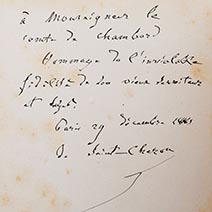 à Monseigneur le
comte de Chambord
Hommage de l'inviolable
fidélité de son vieux serviteur
et sujet
Paris 29 décembre 1881
De Saint-Chéron